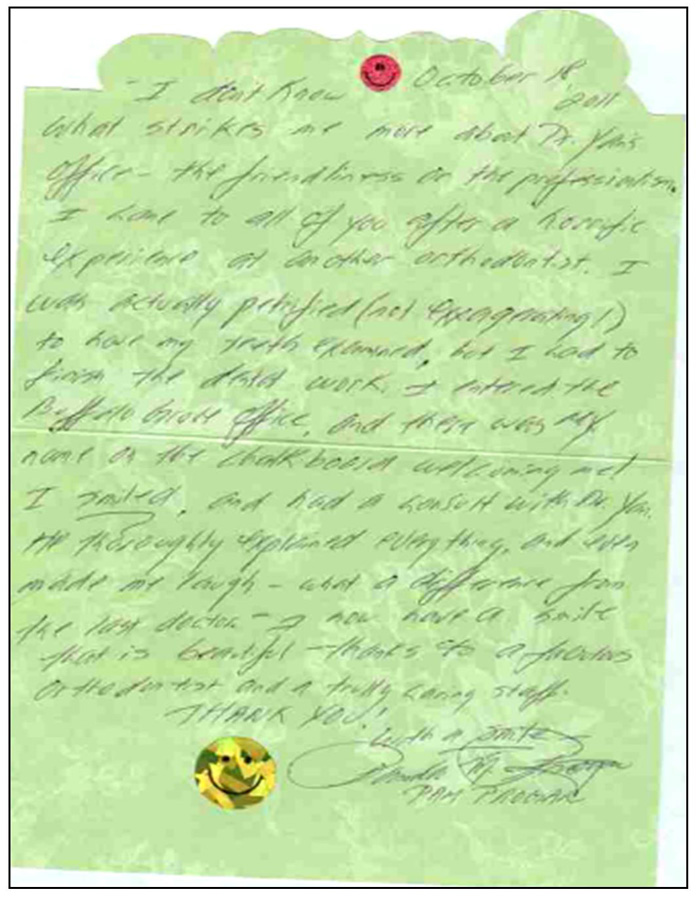 October 18
2011
"I don't know
what strikes me more about Dr. Yan's
office - the friendliness or the professionalism.
I came to all of you after a horrific
experience at another orthodontist. I
was actually petrified (not exaggerating!)
to have my teeth examined, but I had to
finish the dental work. I entered the
Buffalo Grove office, and there was my
name on the chalkboard welcoming me!
I smiled, and had a consult with Dr. Yan.
He thoroughly explained everything, and even
made me laugh - what a difference from
the last doctor - I now have a smile
that is beautiful - thanks to a fabulous
orthodontist and a truly caring staff.
THANK YOU!
with a smile
PAM